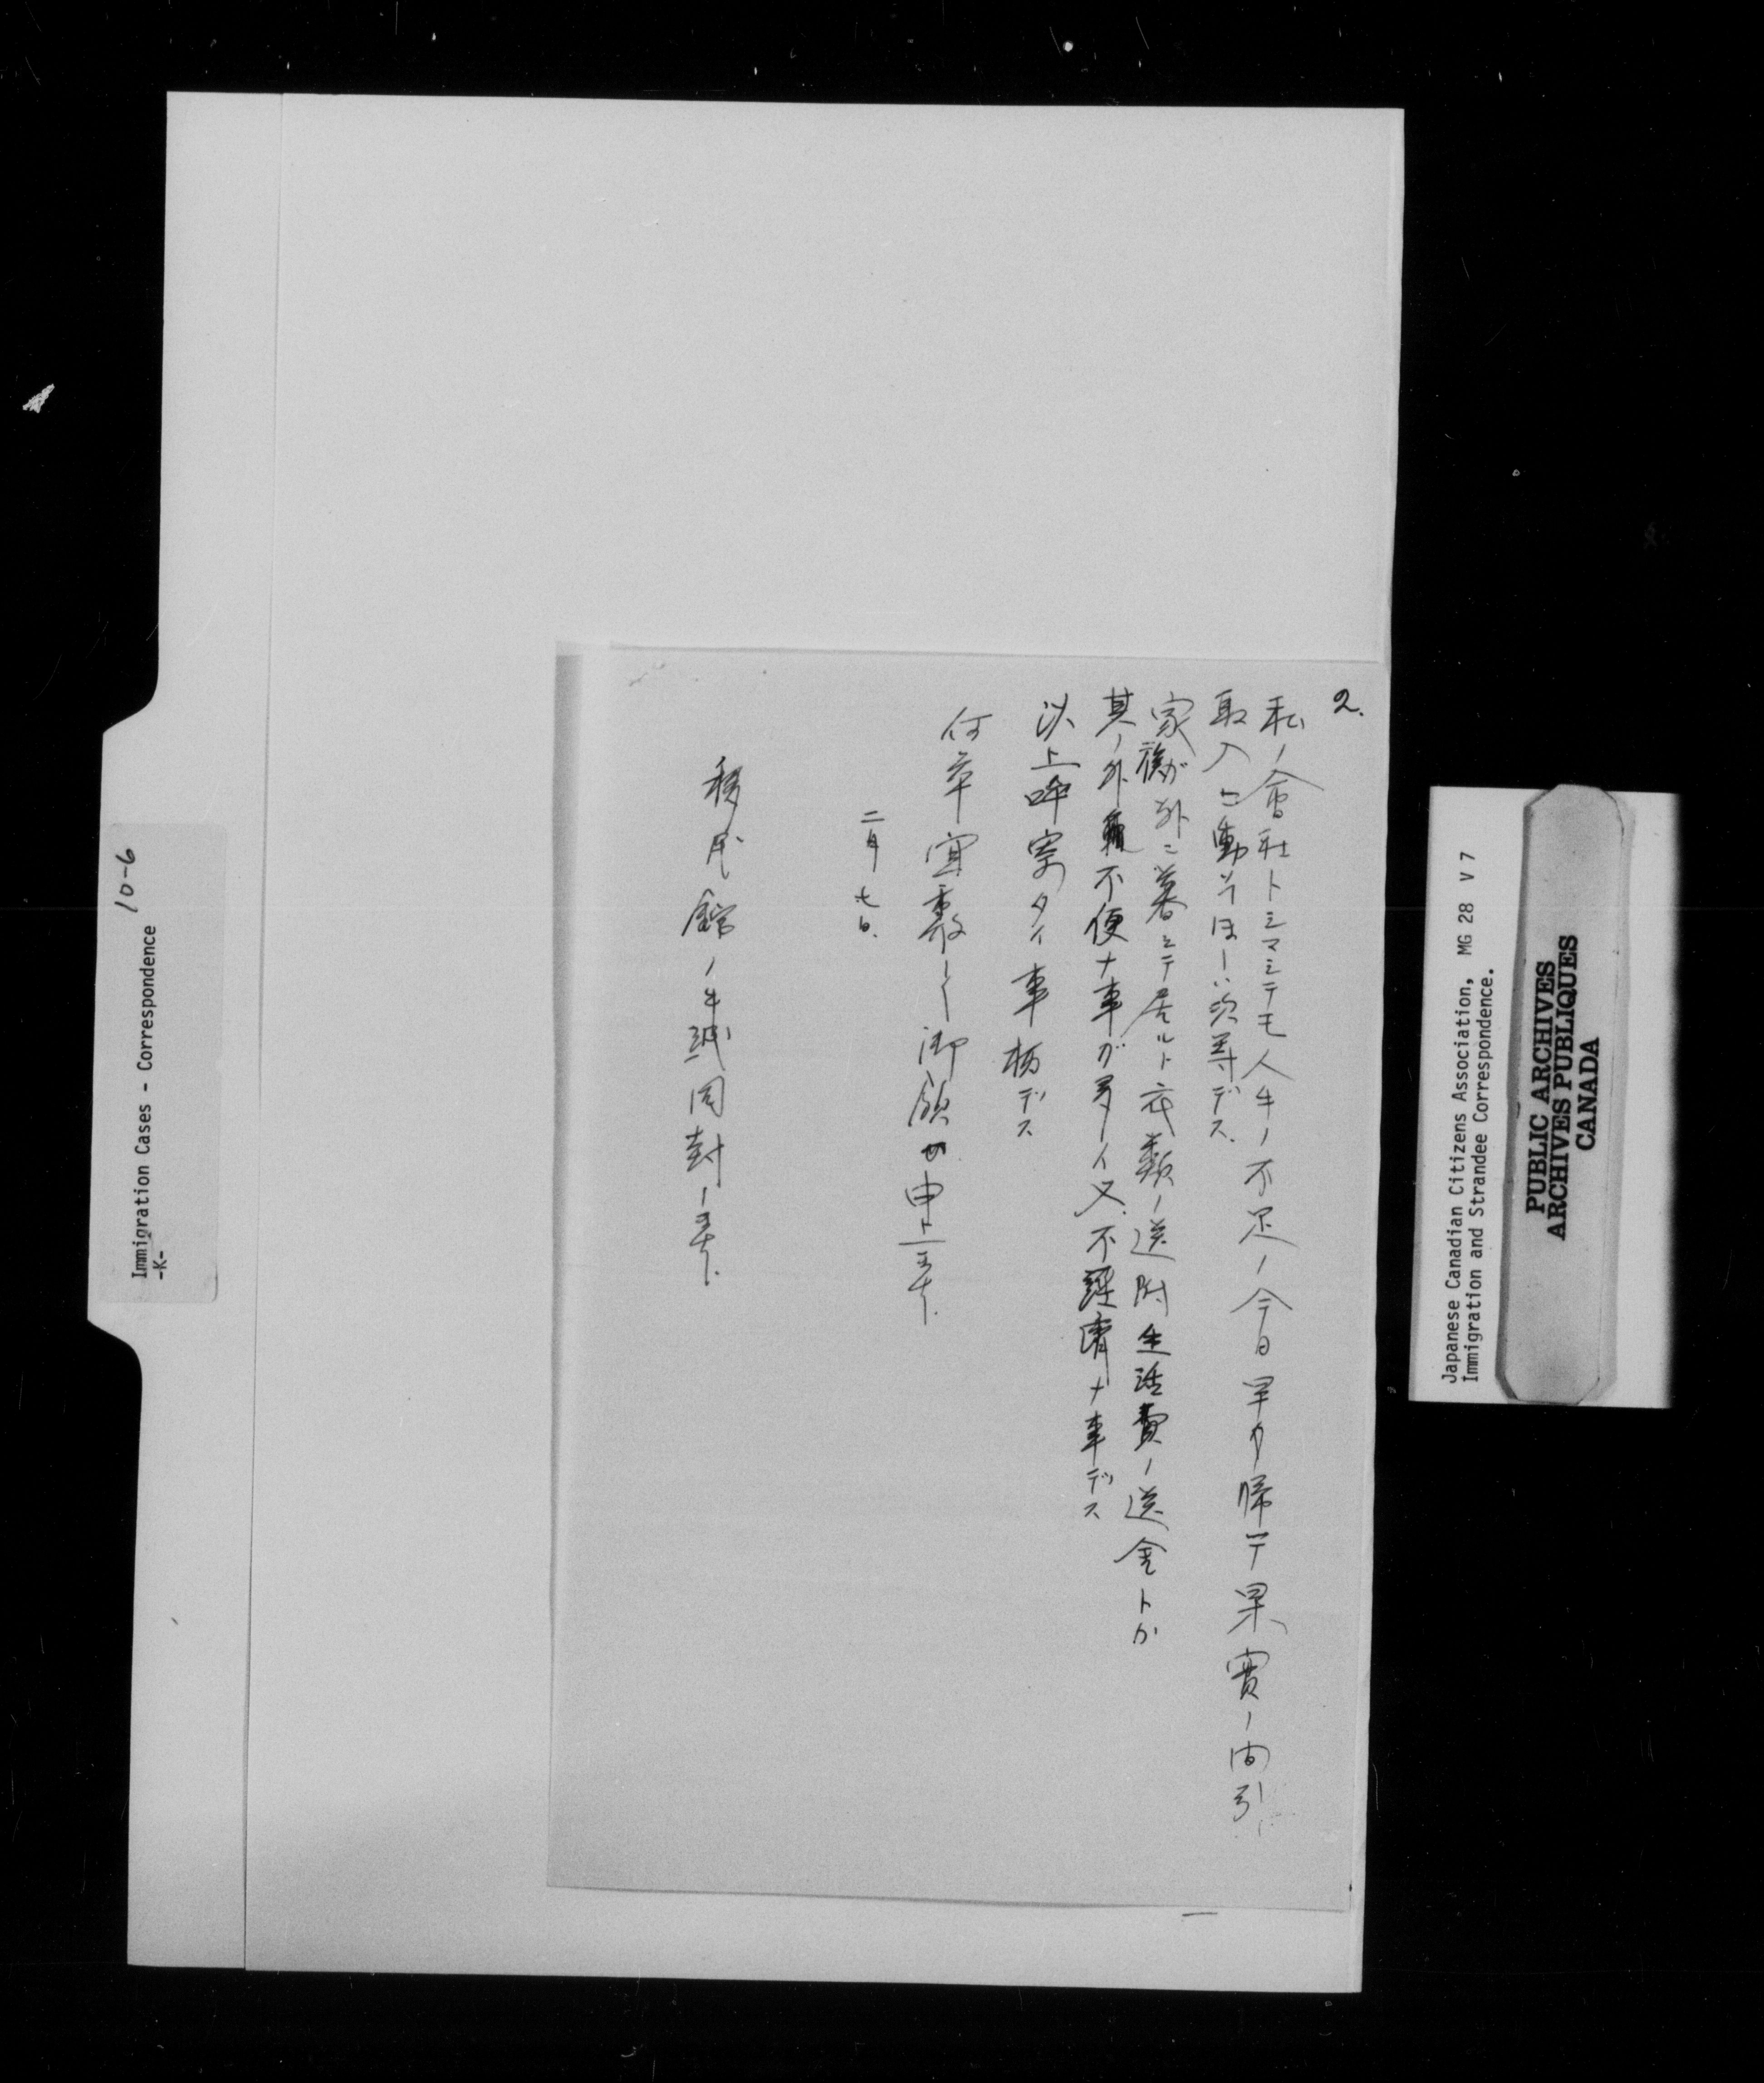 2.
私ノ會社トシマシテモ人手ノ不足ノ今日早ク帰テ果實ノ間引
取入ニ働イテほしい次第デス.
家族が外ニ暮シテ居ルト衣類ノ送附生活費ノ送金トカ
其ノ外種不便ナ事ガ多イ又不経済ナ事デス
以上呼寄タイ事柄デス
何卒宜敷く御願申上ます.
二月七日.
移民館ノ手紙同封します.
Immigration Cases - Correspondence
-K-
10-6
Japanese Canadian Citizens Association, MG 28 V 7
Immigration and Strandee Correspondence.
PUBLIC ARCHIVES
ARCHIVES PUBLIQUES
CANADA